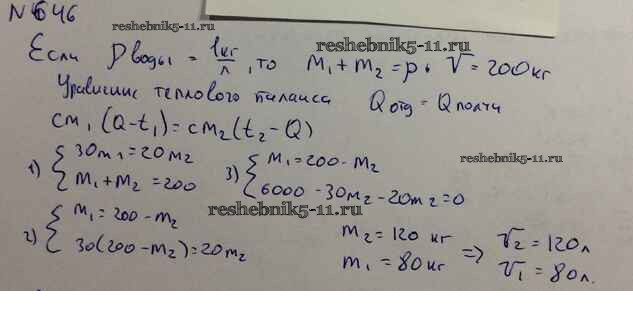 №646
reshebnik5-11.ru
Если ρводы = 1кг/л, то m₁ + m₂ = ρ · V = 200кг
reshebnik5-11.ru
Уравнение теплового баланса Qотд = Qполуч
cm₁(Q-t₁) = cm₂(t₂-Q)
1) { 30m₁ = 20m₂
m₁ + m₂ = 200
3) { m₁ = 200 - m₂
6000 - 30m₂ - 20m₂ = 0
reshebnik5-11.ru
reshebnik5-11.ru
2) { m₁ = 200 - m₂
30(200 - m₂) = 20m₂
m₂ = 120 кг
m₁ = 80 кг
=> V₂ = 120л
V₁ = 80л.
reshebnik5-11.ru